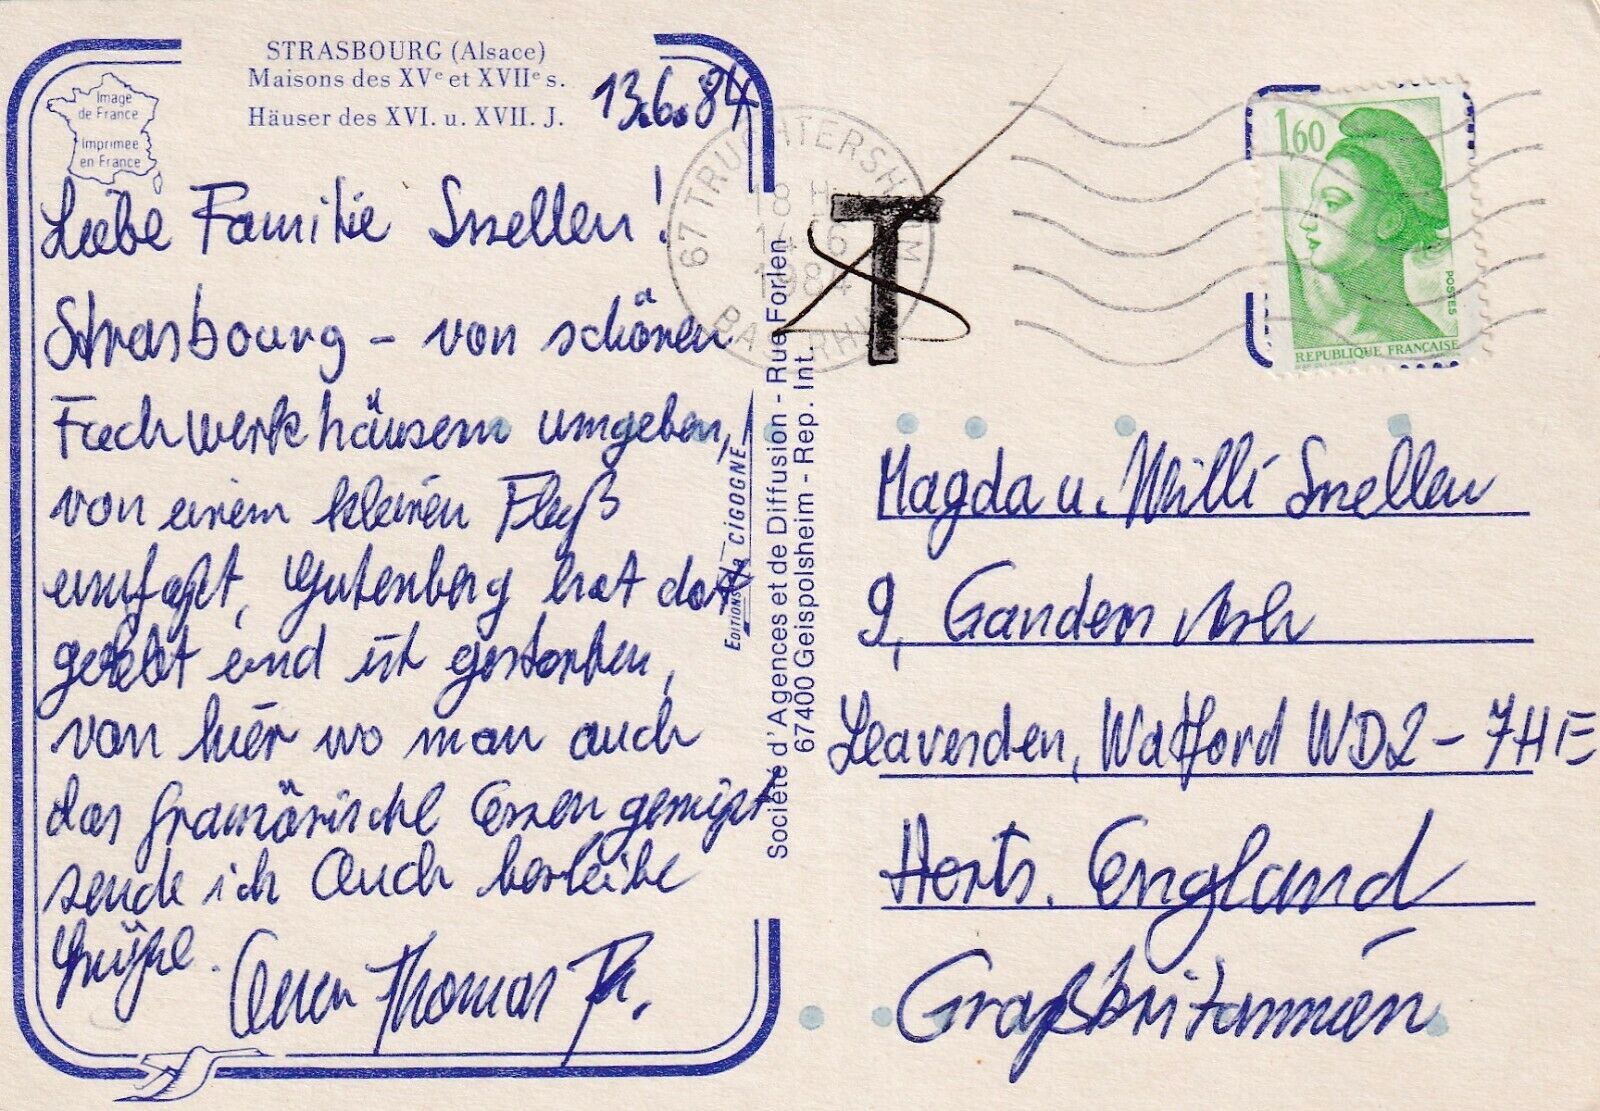 STRASBOURG (Alsace)
Maisons des XVe et XVIIe s.
Häuser des XVI. u. XVII. J.
Image
de France
Imprimée
en France
13.6.84
Liebe Familie Snellen!
Strasbourg – von schönen
Fachwerkhäusern umgeben,
von einem kleinen Fluß
umfaßt, Gutenberg hat dort
gelebt und ist gestorben,
von hier wo man auch
das französische Essen genießt
sende ich Euch herliche
Grüße.
Euer Thomas
EDITIONS la CIGOGNE
Société d'Agences et de Diffusion - Rue Forlen
67400 Geispolsheim - Rep. Int.
67 TRUCHTERSHEIM
18 H
14-6
1984
BAS-RHIN
T
1,60
POSTES
REPUBLIQUE FRANÇAISE
Magda u. Willi Snellen
9, Ganders Ash
Leavesden, Watford WD2-7HE
Herts. England
Großbritannien